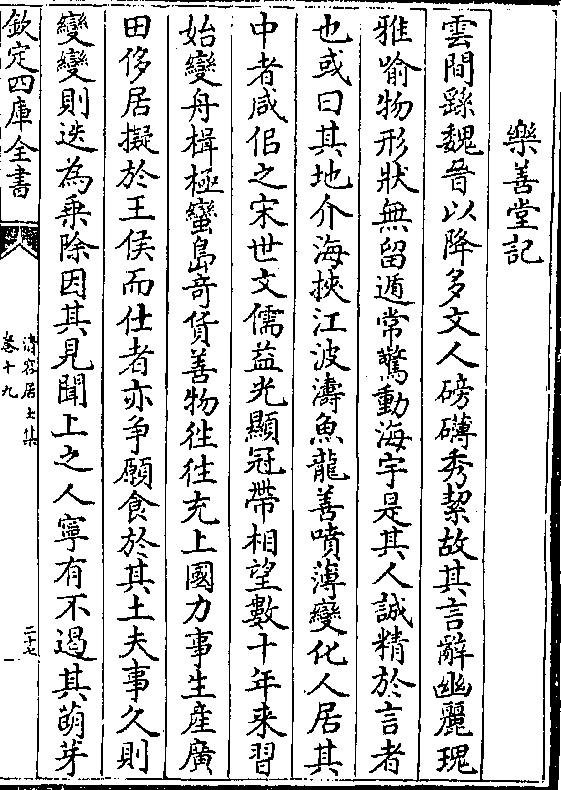 樂善堂記
雲間繇魏晉以降多文人磅礴秀絜故其言辭幽麗瑰
雅喻物形狀無留遁常驚動海宇是其人誠精於言者
也或曰其地介海挾江波濤魚龍善噴薄變化人居其
中者咸佀之宋世文儒益光顯冠帶相望數十年来習
始變舟楫極蠻島竒貨善物徃徃充上國力事生産廣
田侈居擬於王侯而仕者亦争願食於其土夫事久則
變變則迭為乗除因其見聞上之人寧有不遏其萌芽
欽定四庫全書
清容居士集
卷十九
二十七